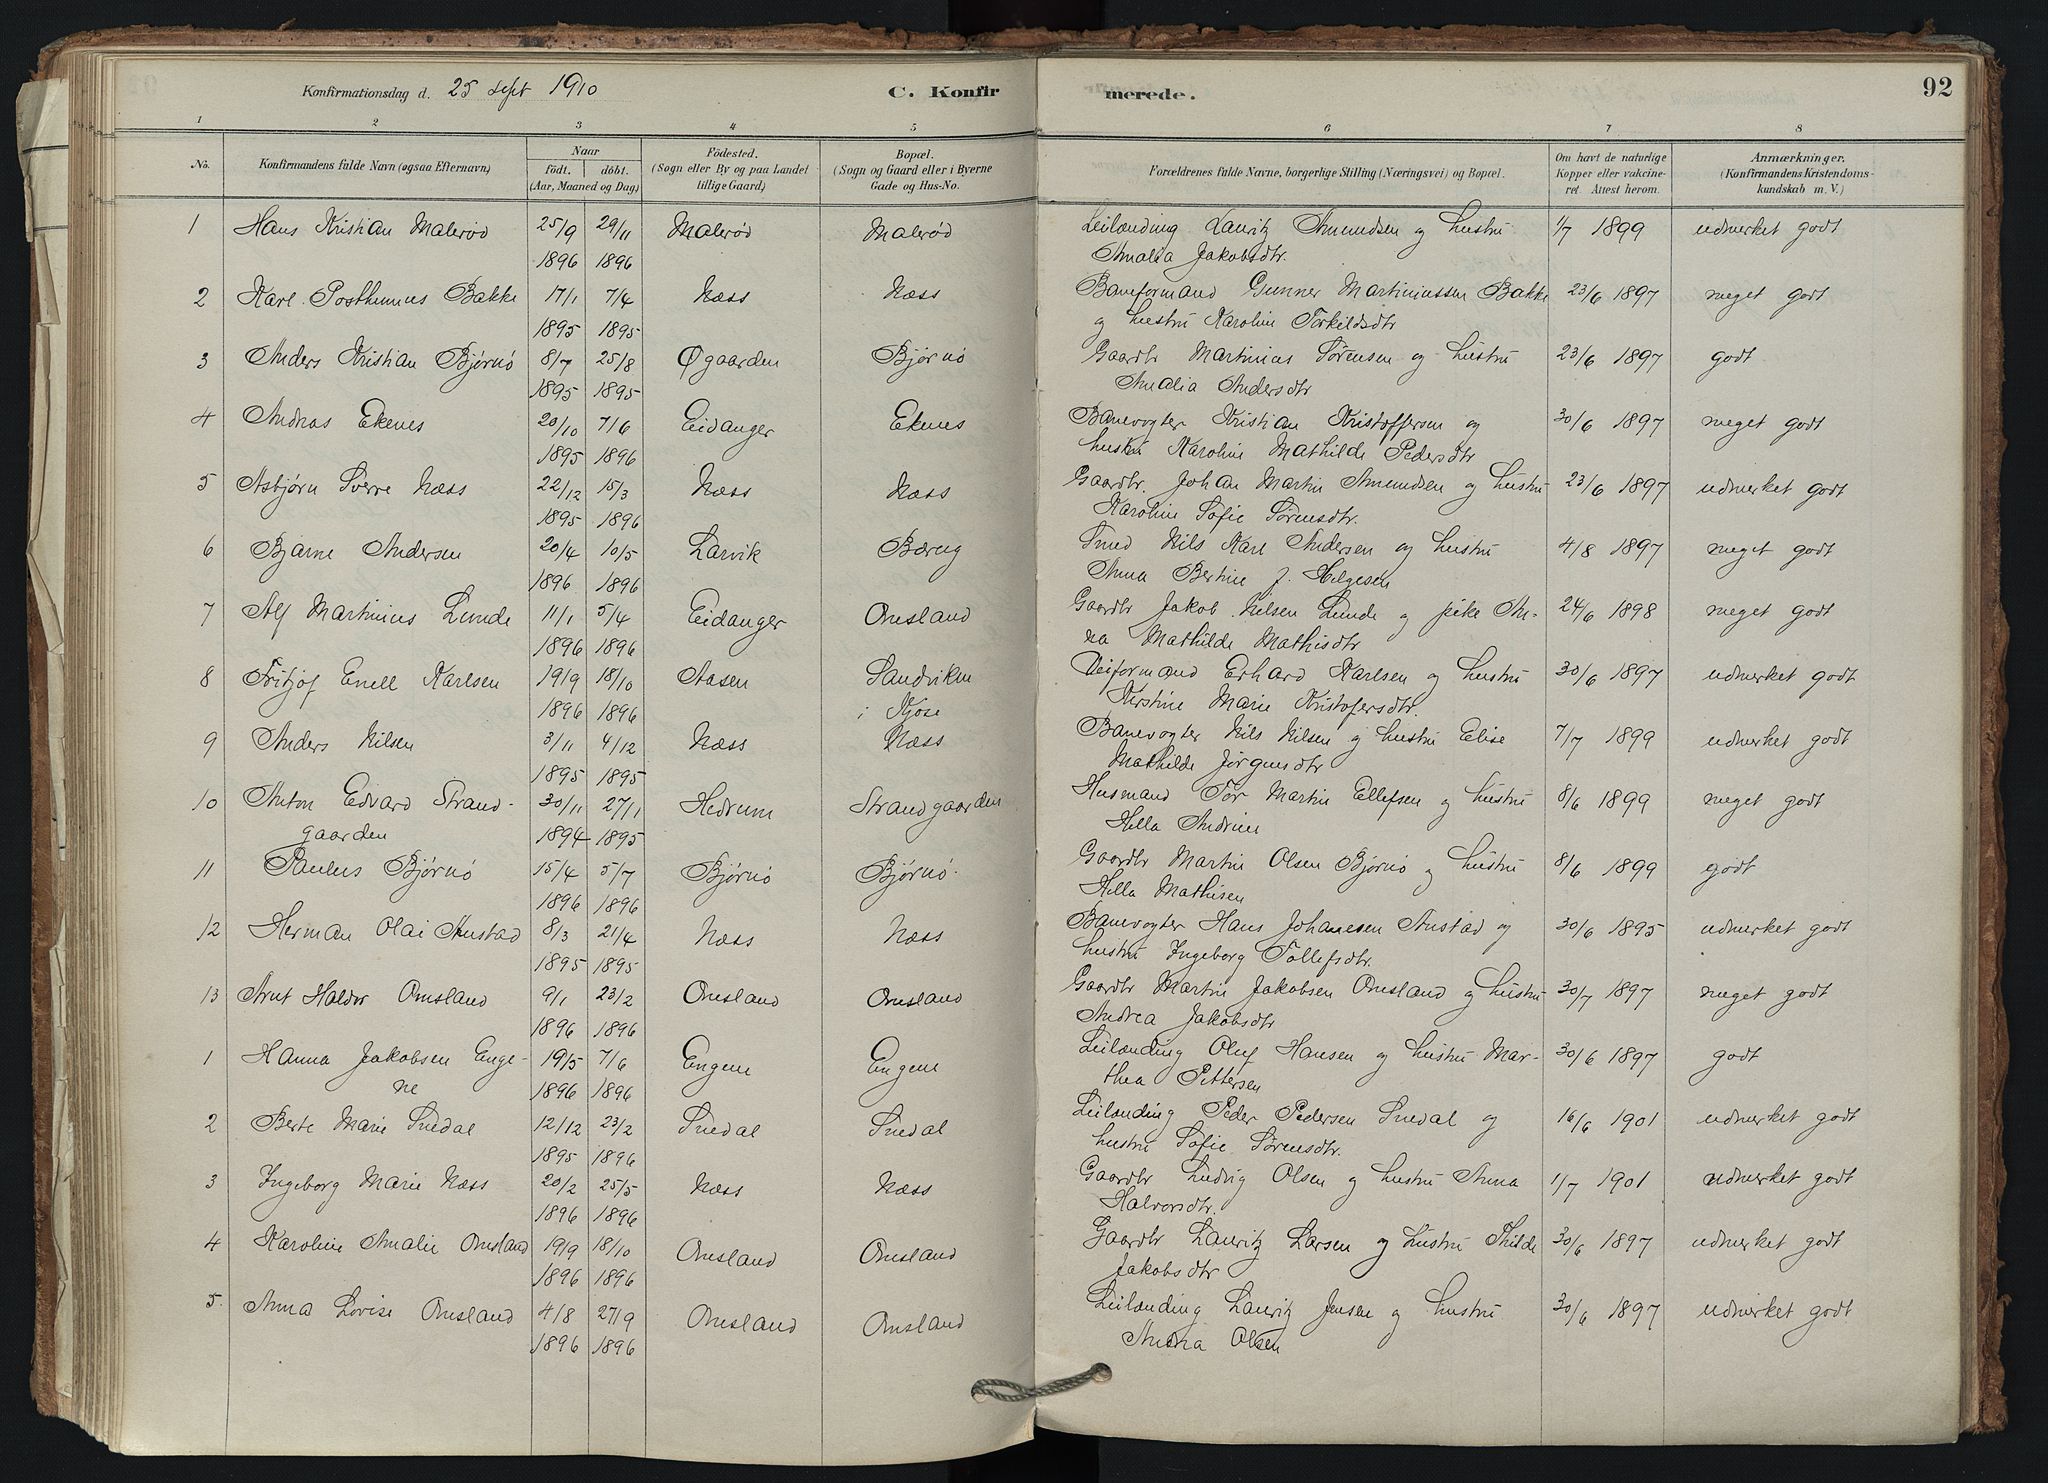 Konfirmationsdag d. 25 sept 1910 C. Konfirmerede. 92
1 2 3 4 5 6 7 8
No. Konfirmandens fulde Navn (ogsaa Efternavn) Naar födt. döbt. (Aar, Maaned og Dag) Födested. (Sogn eller By og paa Landet tillige Gaard) Bopæl. (Sogn og Gaard eller i Byerne Gade og Hus-No. Forældrenes fulde Navne, borgerlige Stilling (Næringsvei) og Bopæl. Om havt de naturlige Kopper eller vakcineret Attest herom. Anmærkninger. (Konfirmandens Kristendomskundskab m. V.)
1 Hans Kristian Malerød 25/9 29/11 Malerød Malerød Leilænding Lauritz Amundsen og hustru 1/7 1899 udmerket godt
1896 1896 Amalia Jakobsdtr.
2 Karl Posthumus Bakke 17/1 7/4 Næss Næss Baneformand Gunner Martiniussen Bakke 23/6 1897 meget godt
1895 1895 og hustru Karoline Torkildsdtr
3 Anders Kristian Bjørnø 8/7 25/8 Øgaarden Bjørnø Gaardbr Martinius Sørensen og hustru 23/6 1897 godt
1895 1895 Amalia Andersdtr
4 Andreas Ekenes 20/10 7/6 Eidanger Ekenes Banevogter Kristian Kristoffersen og 30/6 1897 meget godt
1895 1896 hustru Karoline Mathilde Pedersdtr
5 Asbjørn Sverre Næss 22/12 15/3 Næss Næss Gaardbr. Johan Martin Amundsen og hustru 23/6 1897 udmerket godt
1895 1896 Karoline Sofie Sørensdtr.
6 Bjarne Andersen 20/4 10/5 Larvik Børug Smed Nils Karl Andersen og hustru 4/8 1897 meget godt
1896 1896 Anna Bertine f. Helgesen
7 Alf Martinius Lunde 11/1 5/4 Eidanger Omsland Gaardbr Jakob Nilsen Lunde og pike An- 24/6 1898 meget godt
1896 1896 na Mathilde Mathisdtr
8 Fritjof Enell Karlsen 19/9 18/10 Aasen Sandviken Veiformand Erhard Karlsen og hustru 30/6 1897 udmerket godt
1896 1896 i Kjose Kirstine Marie Kristofersdtr.
9 Anders Nilsen 3/11 4/12 Næss Næss Banevogter Nils Nilsen og hustru Elise 7/7 1899 udmerket godt
1895 1895 Mathilde Jørgensdtr
10 Anton Edvard Strand- 30/11 27/1 Hedrum Strandgaarden Husmand Tor Martin Ellefsen og hustru 8/6 1899 meget godt
gaarden 1894 1895 Hella Andrine
11 Paulus Bjørnø 15/4 5/7 Bjørnø Bjørnø Gaardbr Martin Olsen Bjørnø og hustru 8/6 1899 godt
1896 1896 Hella Mathisen
12 Herman Olai Anstad 8/3 21/4 Næss Næss Banevogter Hans Johanesen Anstad og 30/6 1895 udmerket godt
1895 1895 hustru Ingeborg Tollefsdtr.
13 Arnt Haldor Omsland 9/1 23/2 Omsland Omsland Gaardbr Martin Jakobsen Omsland og hustru 30/7 1897 meget godt
1896 1896 Andrea Jakobsdtr
1 Hanna Jakobsen Enge- 19/5 7/6 Engene Engene Leilænding Oluf Hansen og hustru Mar- 30/6 1897 godt
ne 1896 1896 thea Pettersen
2 Berte Marie Snedal 12/12 23/2 Snedal Snedal Leilænding Peder Pedersen Snedal og 16/6 1901 udmerket godt
1895 1896 hustru Sofie Sørensdtr.
3 Ingeborg Marie Næss 20/2 25/5 Næss Næss Gaardbr Ludvig Olsen og hustru Anna 1/7 1901 udmerket godt
1896 1896 Halvorsdtr.
4 Karoline Amalie Omsland 19/9 18/10 Omsland Omsland Gaardbr Lauritz Larsen og hustru Thilde 30/6 1897 udmerket godt
1896 1896 Jakobsdtr
5. Anna Lovise Omsland 4/8 27/9 Omsland Omsland Leilænding Lauritz Jensen og hustru 30/6 1897 udmerket godt
1896 1896 Andrea Olsen